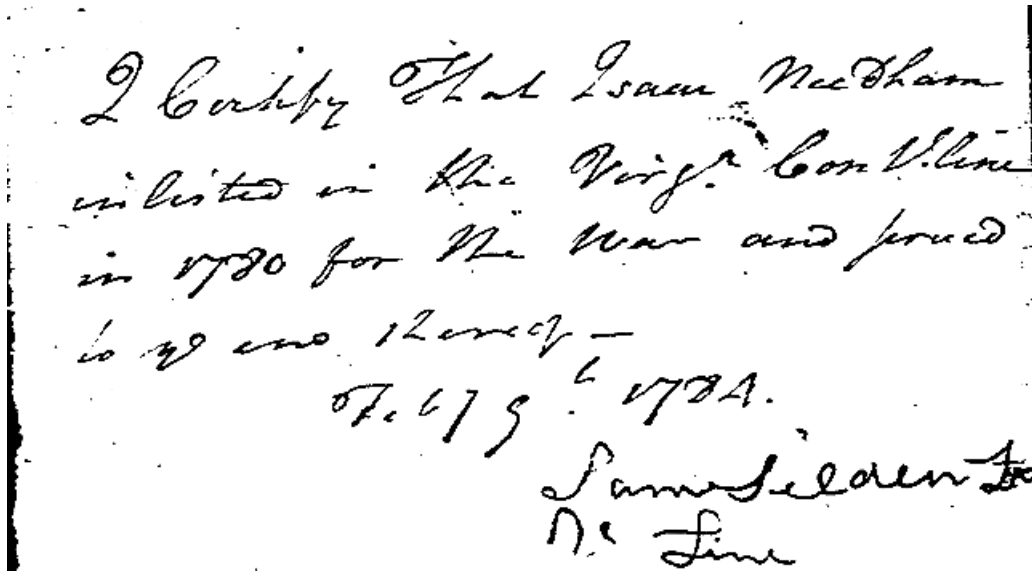 I Certify That Isaac Needham
inlisted in the Virga. Con Vl. line
in 1780 for the War and served
to ye end thereof —
Feby 9th 1784.
Sam Selden
Line